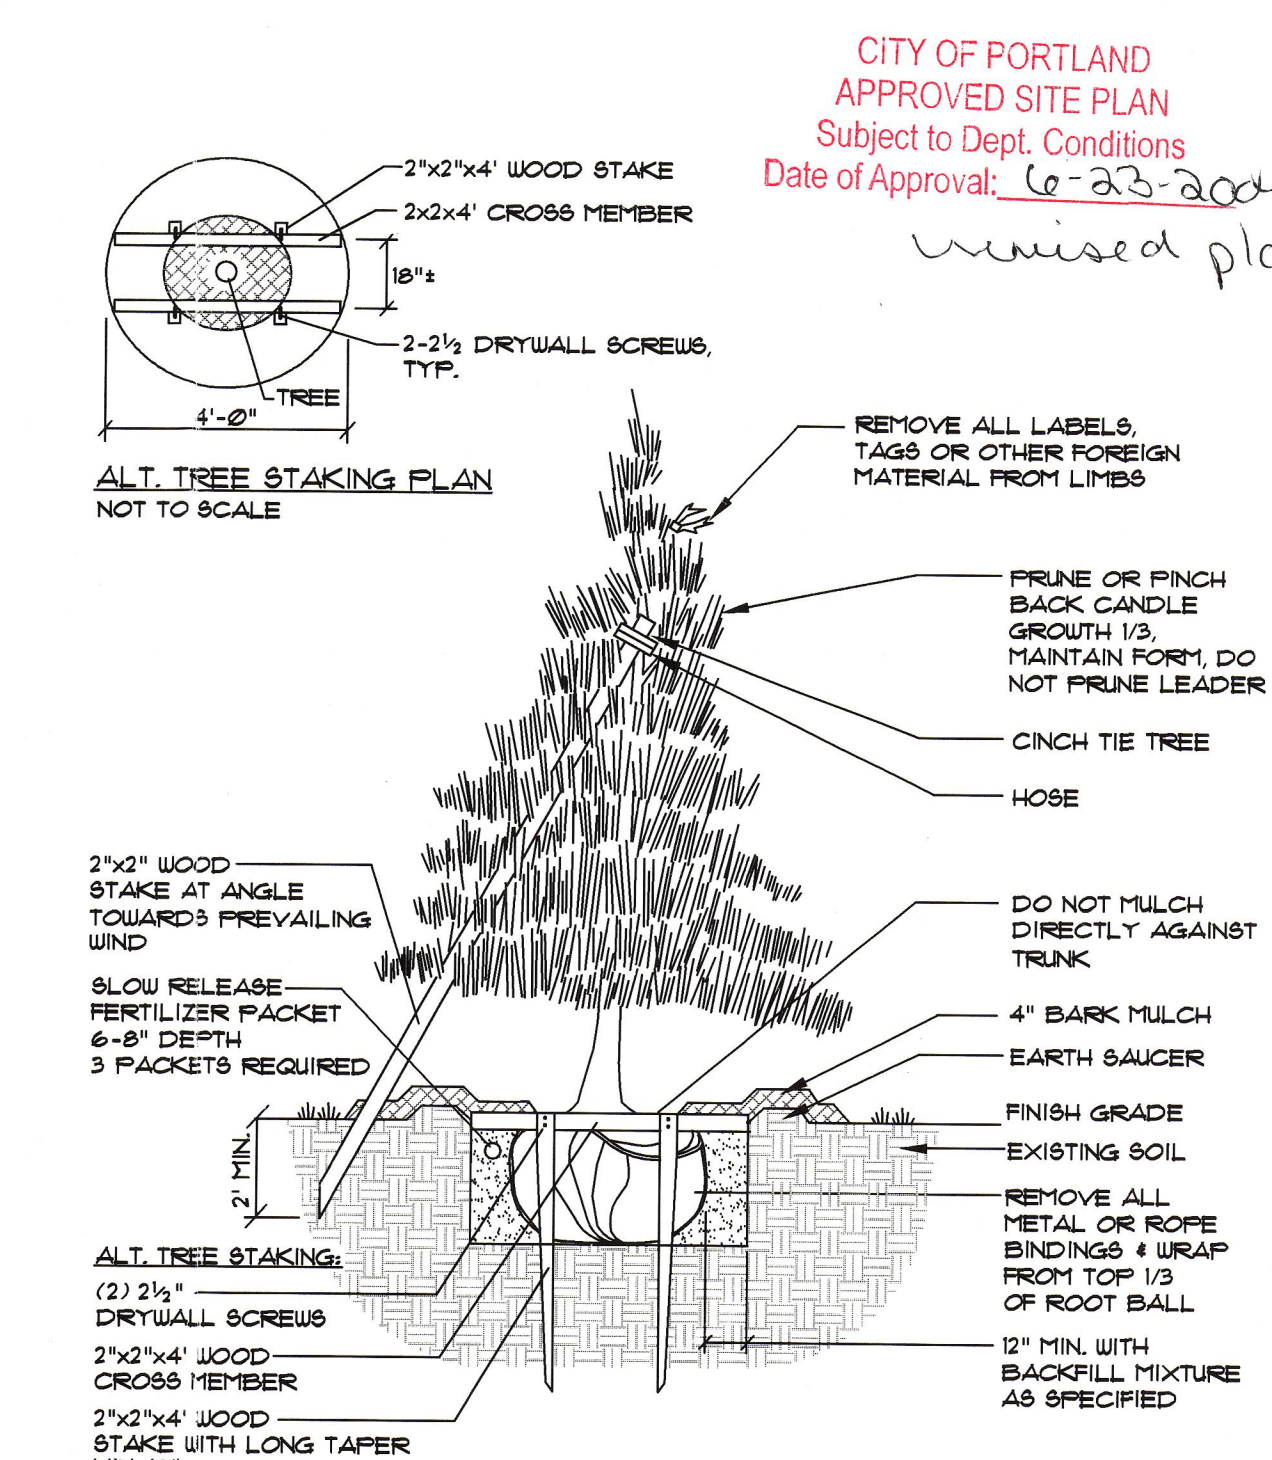 CITY OF PORTLAND
APPROVED SITE PLAN
Subject to Dept. Conditions
Date of Approval: 6-23-200
2"x2"x4' WOOD STAKE
2x2x4' CROSS MEMBER
18"±
2-2½ DRYWALL SCREWS,
TYP.
TREE
4'-0"
ALT. TREE STAKING PLAN
NOT TO SCALE
REMOVE ALL LABELS,
TAGS OR OTHER FOREIGN
MATERIAL FROM LIMBS
PRUNE OR PINCH
BACK CANDLE
GROWTH 1/3,
MAINTAIN FORM, DO
NOT PRUNE LEADER
CINCH TIE TREE
HOSE
2"x2" WOOD
STAKE AT ANGLE
TOWARDS PREVAILING
WIND
SLOW RELEASE
FERTILIZER PACKET
6-8" DEPTH
3 PACKETS REQUIRED
DO NOT MULCH
DIRECTLY AGAINST
TRUNK
4" BARK MULCH
EARTH SAUCER
FINISH GRADE
EXISTING SOIL
2' MIN.
REMOVE ALL
METAL OR ROPE
BINDINGS & WRAP
FROM TOP 1/3
OF ROOT BALL
12" MIN. WITH
BACKFILL MIXTURE
AS SPECIFIED
ALT. TREE STAKING:
(2) 2½"
DRYWALL SCREWS
2"x2"x4' WOOD
CROSS MEMBER
2"x2"x4' WOOD
STAKE WITH LONG TAPER